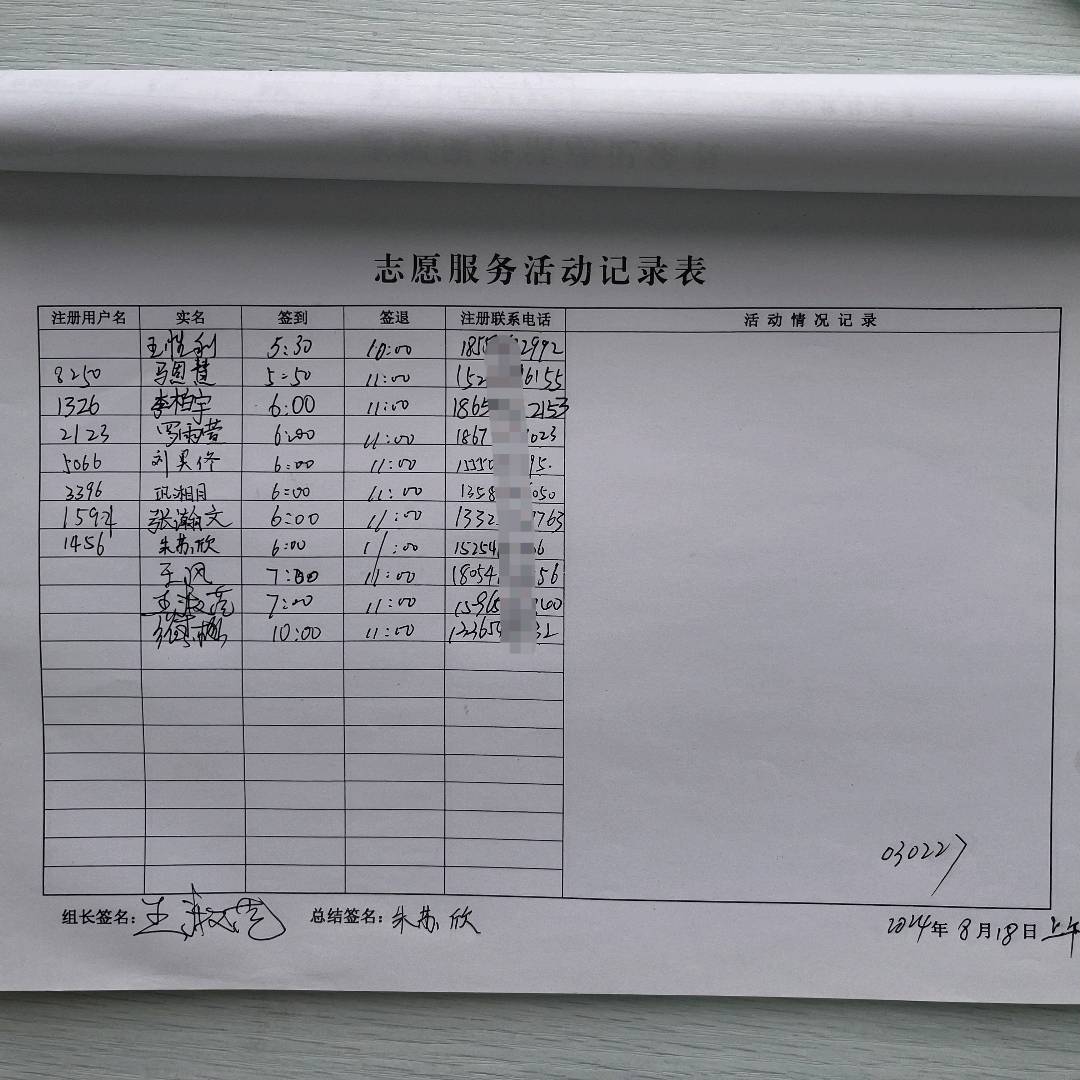 志愿服务活动记录表
注册用户名 实名 签到 签退 注册联系电话 活动情况记录
王性利 5:30 10:00 185 2992
8250 马恩慧 5:50 11:00 152 6155
1326 李柏宇 6:00 11:00 1865 2153
2123 罗雨萱 6:00 11:00 1867 023
5066 刘昊佟 6:00 11:00 15550 95.
3396 巩湘月 6:00 11:00 1358 050
1594 张瀚文 6:00 11:00 1332 763
1456 朱苏欣 6:00 11:00 15254 6
于风 7:00 11:00 18054 56
王淑范 7:00 11:00 15965 260
10:00 11:00 32
030227
组长签名:王淑范 总结签名:朱苏欣 2024年8月18日上午